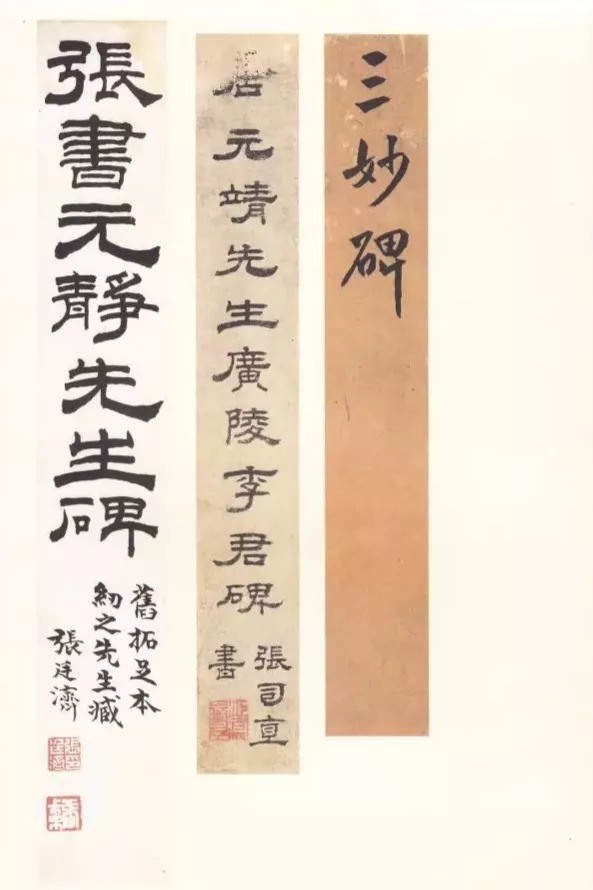 三妙碑
唐元靖先生廣陵李君碑
張司直
書
張書元靜先生碑
舊拓足本
紉之先生藏
張廷濟